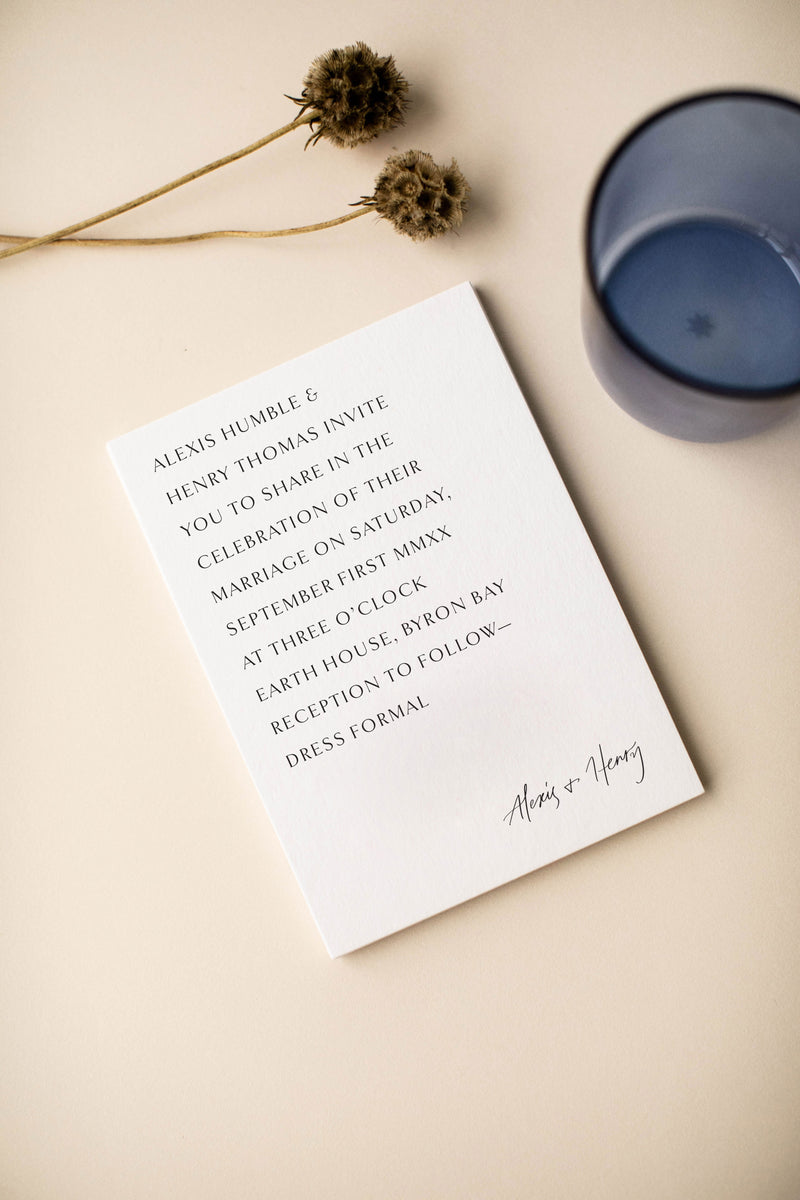 ALEXIS HUMBLE &
HENRY THOMAS INVITE
YOU TO SHARE IN THE
CELEBRATION OF THEIR
MARRIAGE ON SATURDAY,
SEPTEMBER FIRST MMXX
AT THREE O’CLOCK
EARTH HOUSE, BYRON BAY
RECEPTION TO FOLLOW—
DRESS FORMAL
Alexis + Henry